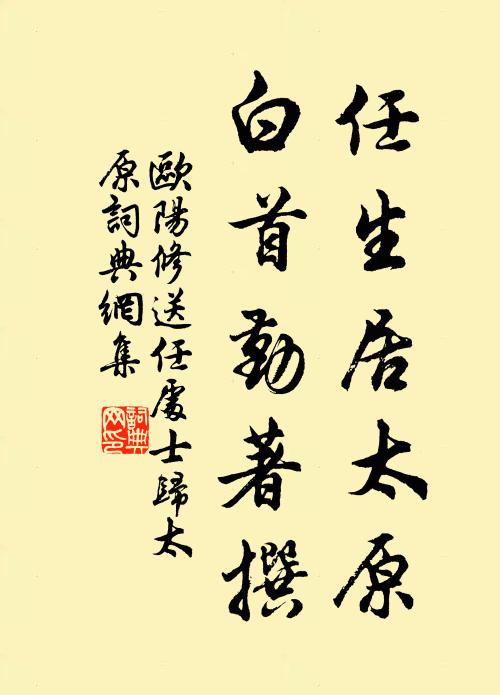 任生居太原
白首勤著撰
歐陽修送任處士歸太
原詞典網集
詞典
网印